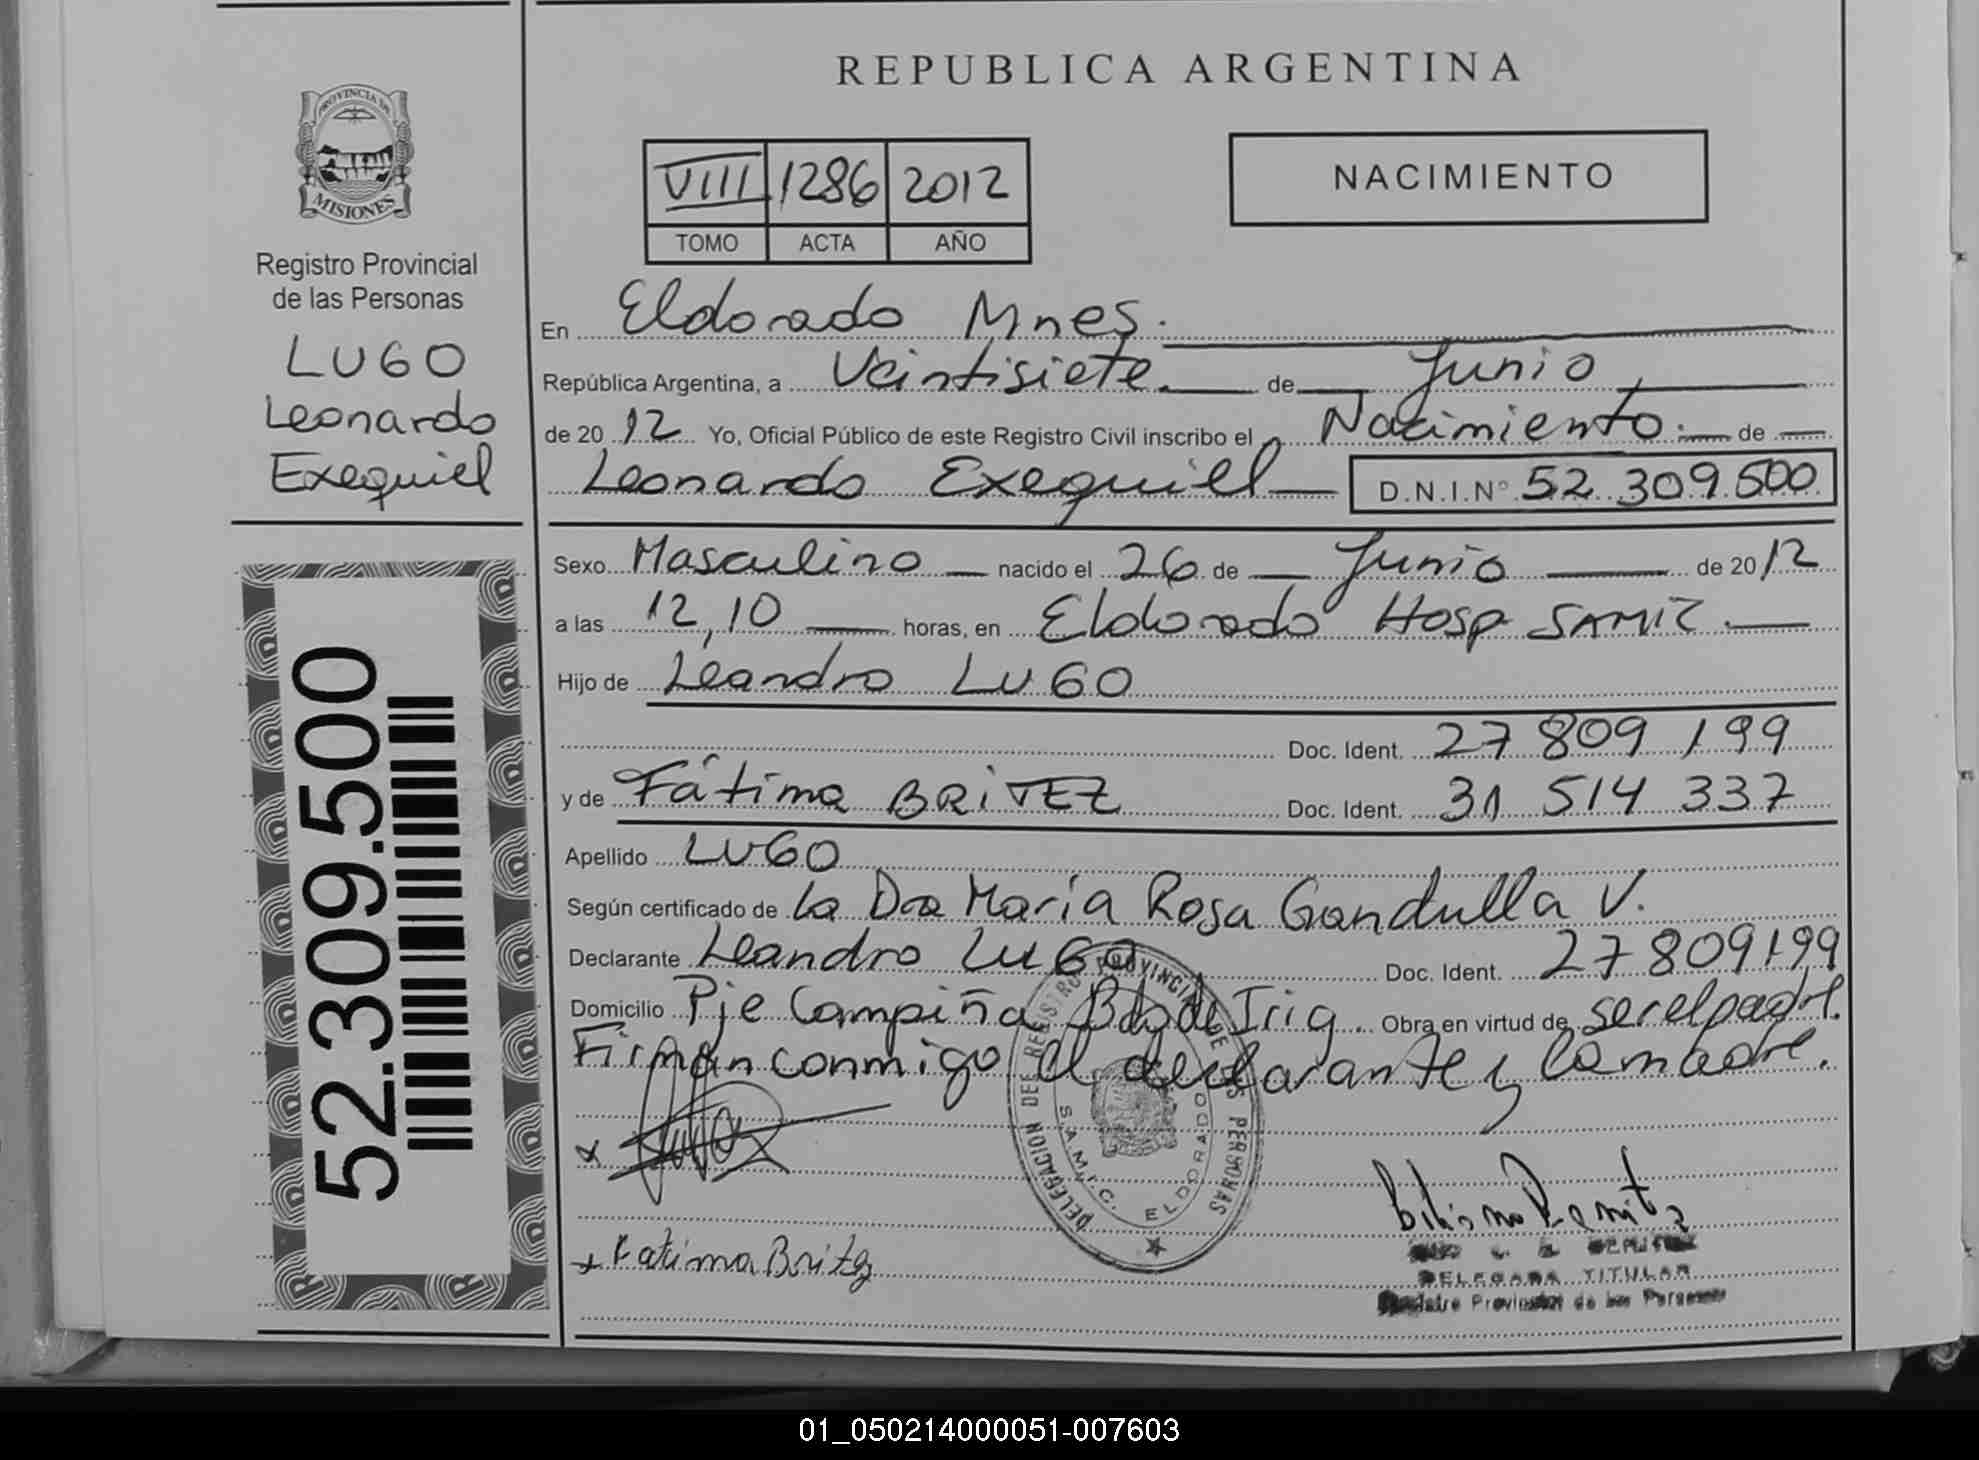 REPUBLICA ARGENTINA
PROVINCIA DE
MISIONES
Registro Provincial
de las Personas
LUGO
Leonardo
Exequiel
52.309.500
VIII 1286 2012
TOMO ACTA AÑO
NACIMIENTO
En Eldorado Mnes.
República Argentina, a Veintisiete. de Junio,
de 20 12 Yo, Oficial Público de este Registro Civil inscribo el Nacimiento. de
Leonardo Exequiel D.N.I.Nº 52.309.500
Sexo Masculino nacido el 26 de Junio de 2012
a las 12,10 horas, en Eldorado Hosp SAMIC.
Hijo de Leandro LUGO
Doc. Ident. 27 809 199
y de Fátima BRiTEZ Doc. Ident. 31 514 337
Apellido LUGO
Según certificado de La Dra María Rosa Gandulla V.
Declarante Leandro LUGO Doc. Ident. 27809199
Domicilio Pje Campiña Bdo de Irig. Obra en virtud de ser el padre.
Firman conmigo el declarante y la madre.
DELEGACION DEL REGISTRO PROVINCIAL DE LAS PERSONAS
S.A.M.I.C. ELDORADO
x Fatima Britez
DELEGADA TITULAR
Registro Provincial de las Personas
01_050214000051-007603